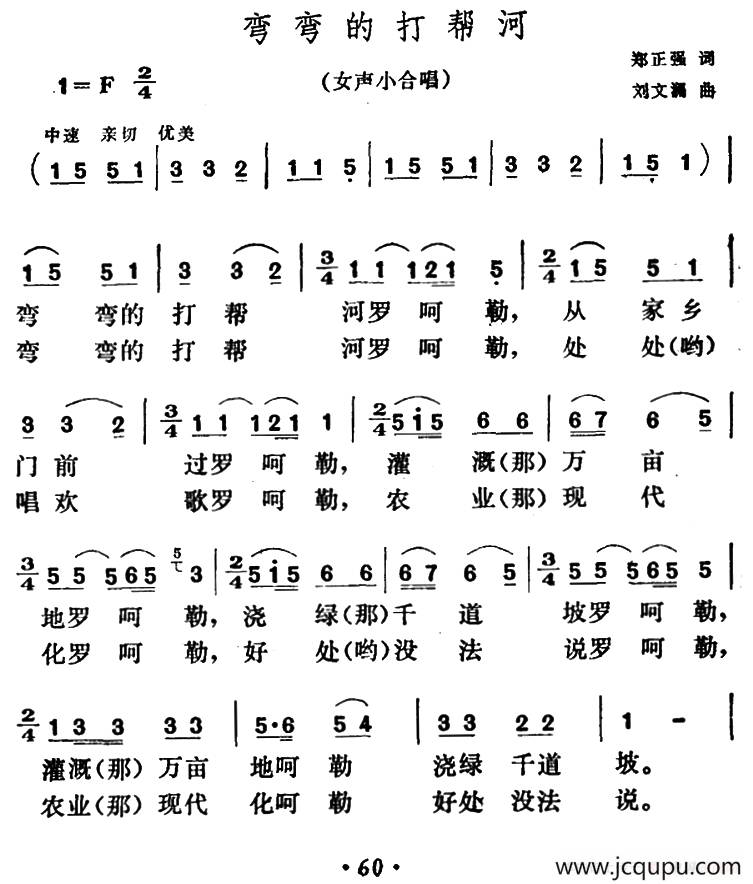 弯弯的打帮河
郑正强 词
1=F 2/4 (女声小合唱)
刘文漏 曲
中速 亲切 优美
(1 5 5 1 | 3 3 2 | 1 1 5 | 1 5 5 1 | 3 3 2 | 1 5 1) |
1 5 5 1 | 3 3 2 | 3/4 1 1 1 2 1 5 | 2/4 1 5 5 1 |
弯 弯的 打 帮 河罗 呵 勒, 从 家 乡
弯 弯的 打 帮 河罗 呵 勒, 处 处(哟)
3 3 2 | 3/4 1 1 1 2 1 1 | 2/4 5 i 5 6 6 | 6 7 6 5 |
门 前 过罗 呵 勒, 灌 溉(那) 万 亩
唱 欢 歌罗 呵 勒, 农 业(那) 现 代
3/4 5 5 5 6 5 5 3 | 2/4 5 i 5 6 6 | 6 7 6 5 | 3/4 5 5 5 6 5 5 |
地罗 呵 勒, 浇 绿(那) 千 道 坡罗 呵 勒,
化罗 呵 勒, 好 处(哟) 没 法 说罗 呵 勒,
2/4 1 3 3 3 3 | 5·6 5 4 | 3 3 2 2 | 1 - |
灌溉(那) 万亩 地呵 勒 浇绿 千道 坡。
农业(那) 现代 化呵 勒 好处 没法 说。
·60·
www.jcqupu.com